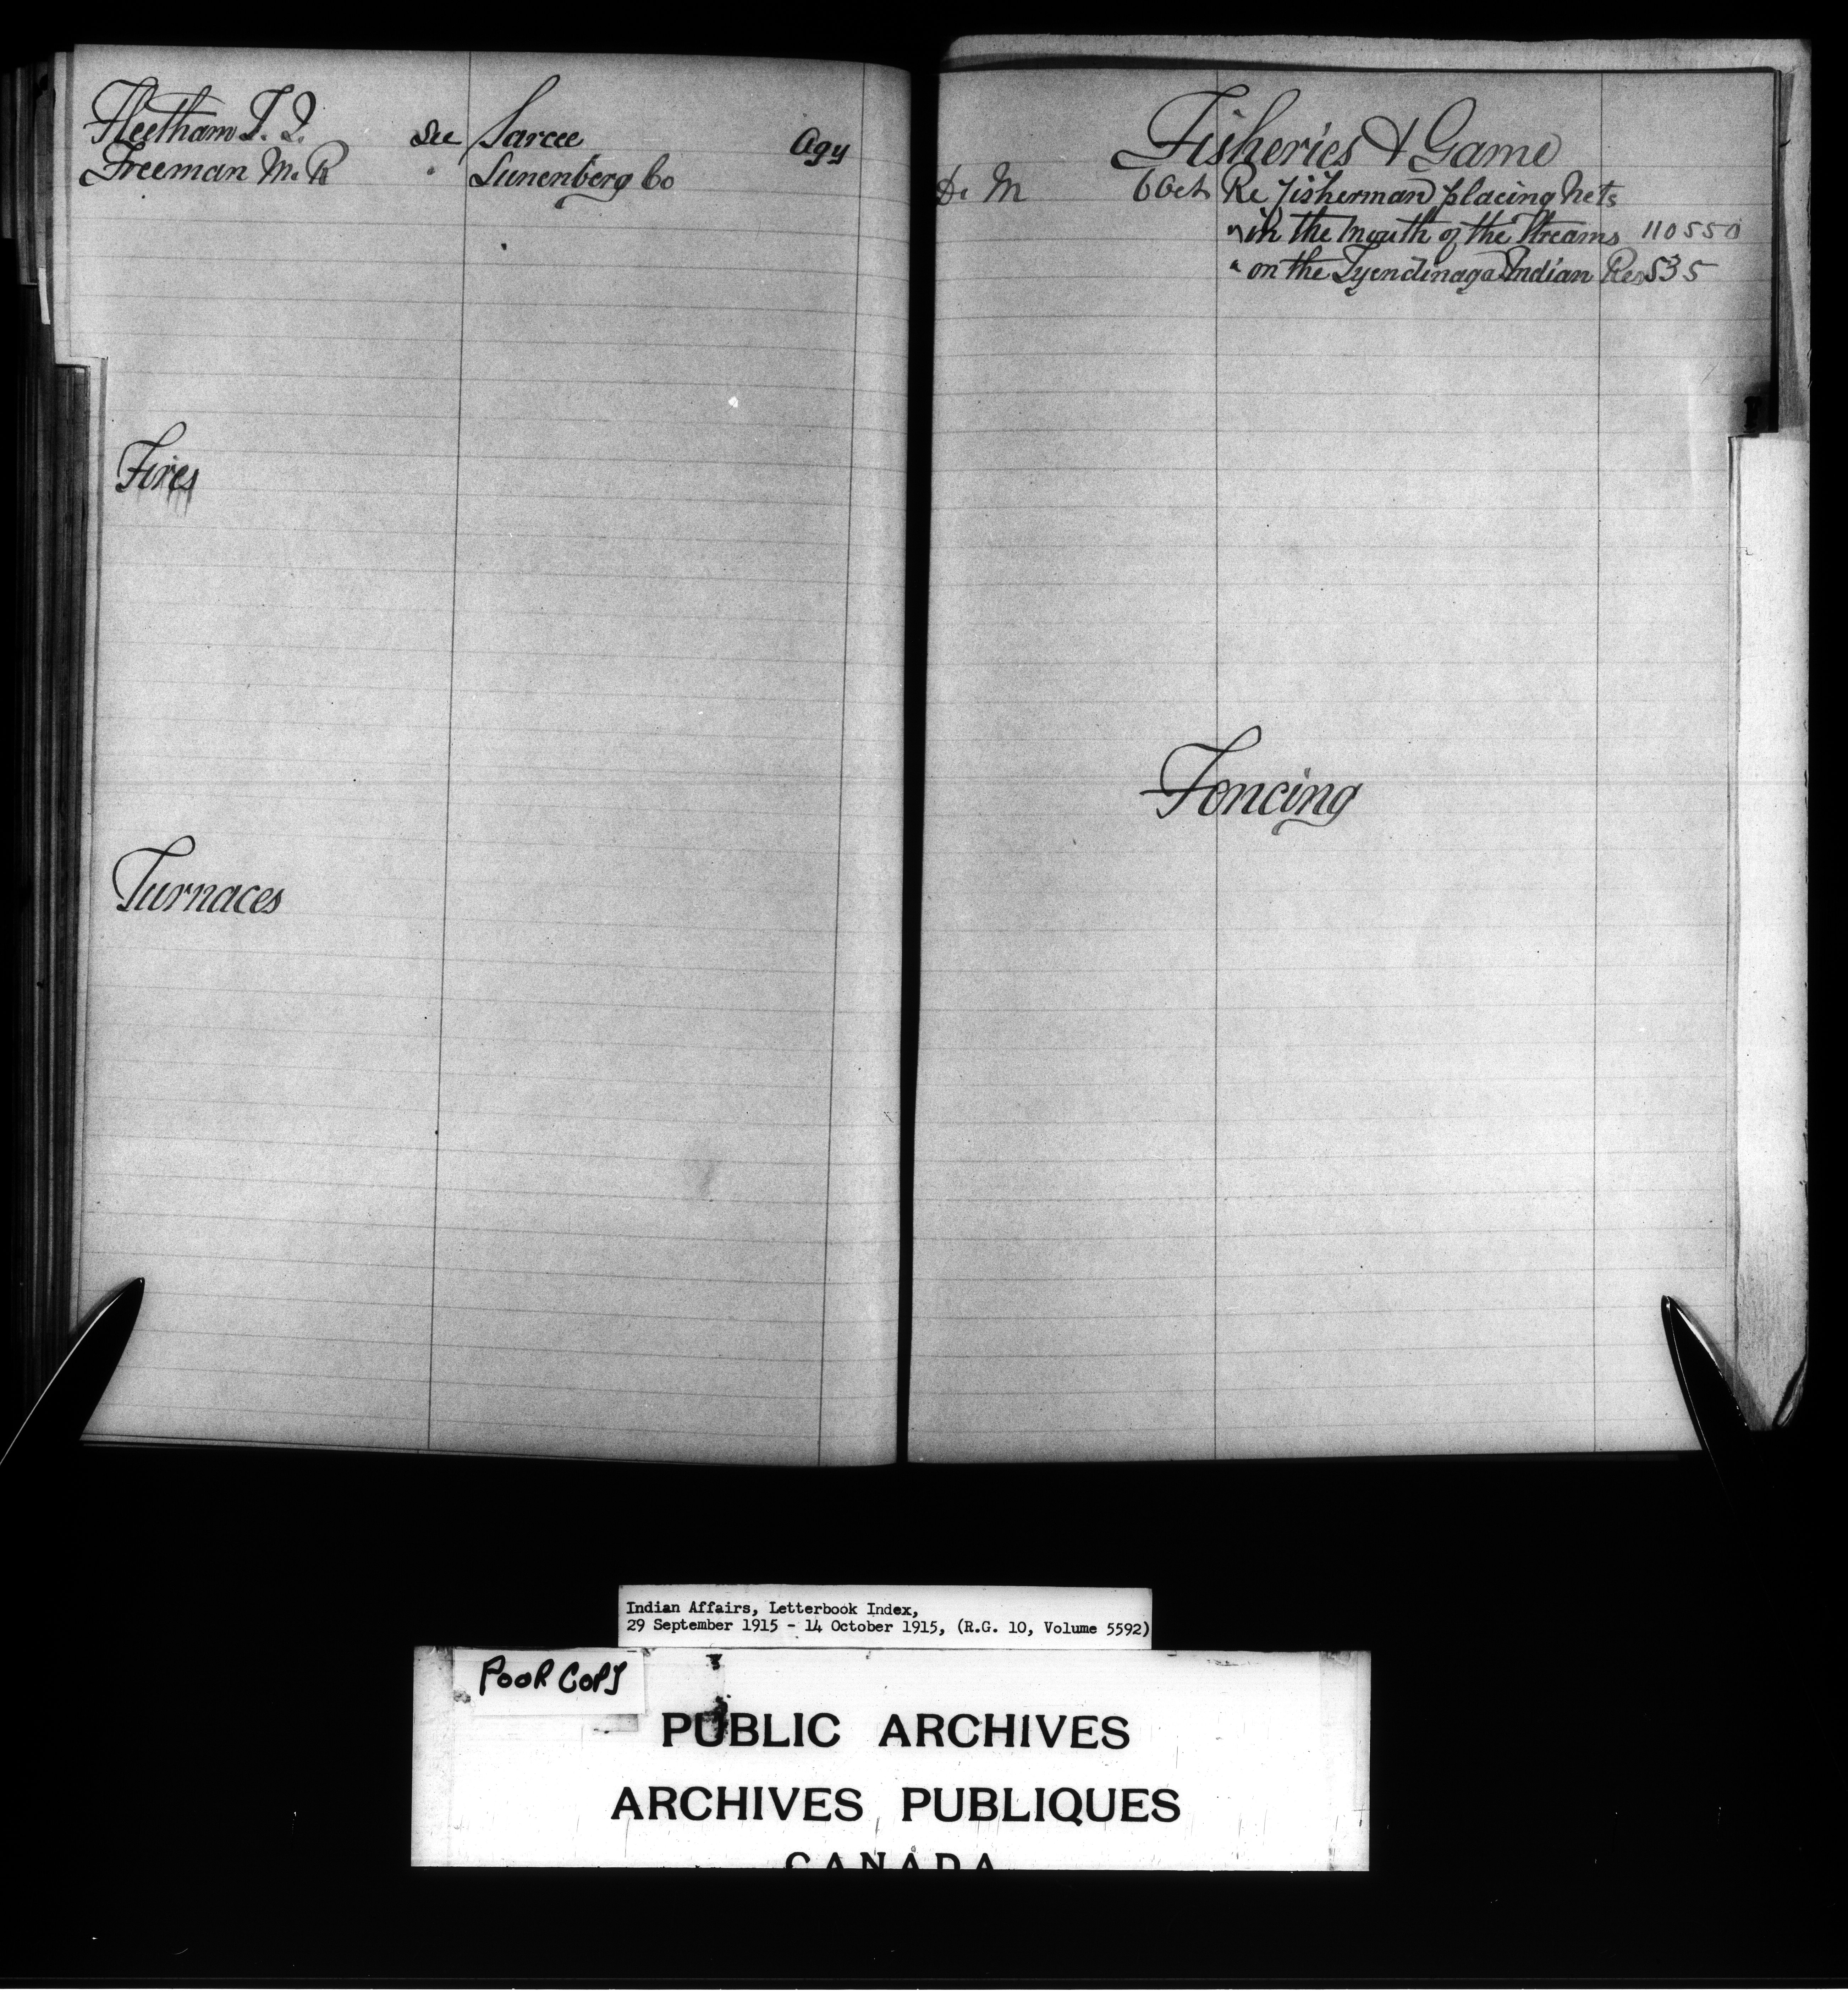 Fleetham T. J. See Sarcee Agy
Freeman M. R " Lunenberg Co
Fires
Furnaces
Fisheries & Game
D. M 6 Oct Re fisherman placing nets
" in the mouth of the Streams 110550
" on the Tyendinaga Indian Res 535
Fencing
Indian Affairs, Letterbook Index,
29 September 1915 - 14 October 1915, (R.G. 10, Volume 5592)
POOR COPY
PUBLIC ARCHIVES
ARCHIVES PUBLIQUES
CANADA